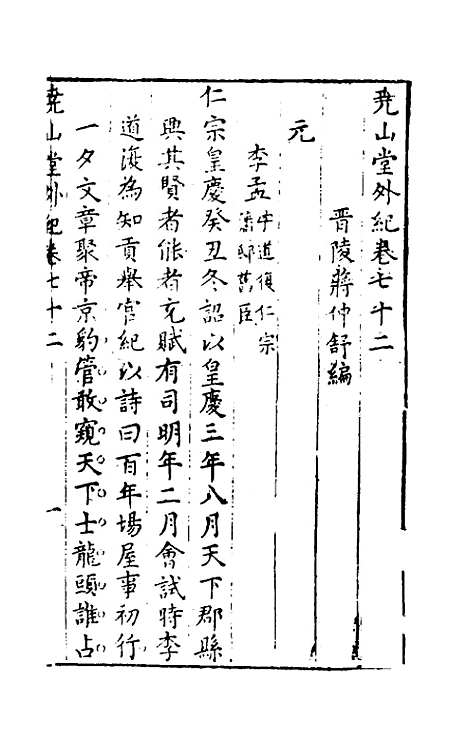 堯山堂外紀卷七十二
晉陵蔣仲舒編
元
李孟字道復仁宗
潛邸舊臣
仁宗皇慶癸丑冬詔以皇慶三年八月天下郡縣
興其賢者能者充賦有司明年二月會試時李
道復為知貢舉官紀以詩曰百年塲屋事初行
一夕文章聚帝京豹管敢窺天下士龍頭誰占
堯山堂外紀卷七十二
一